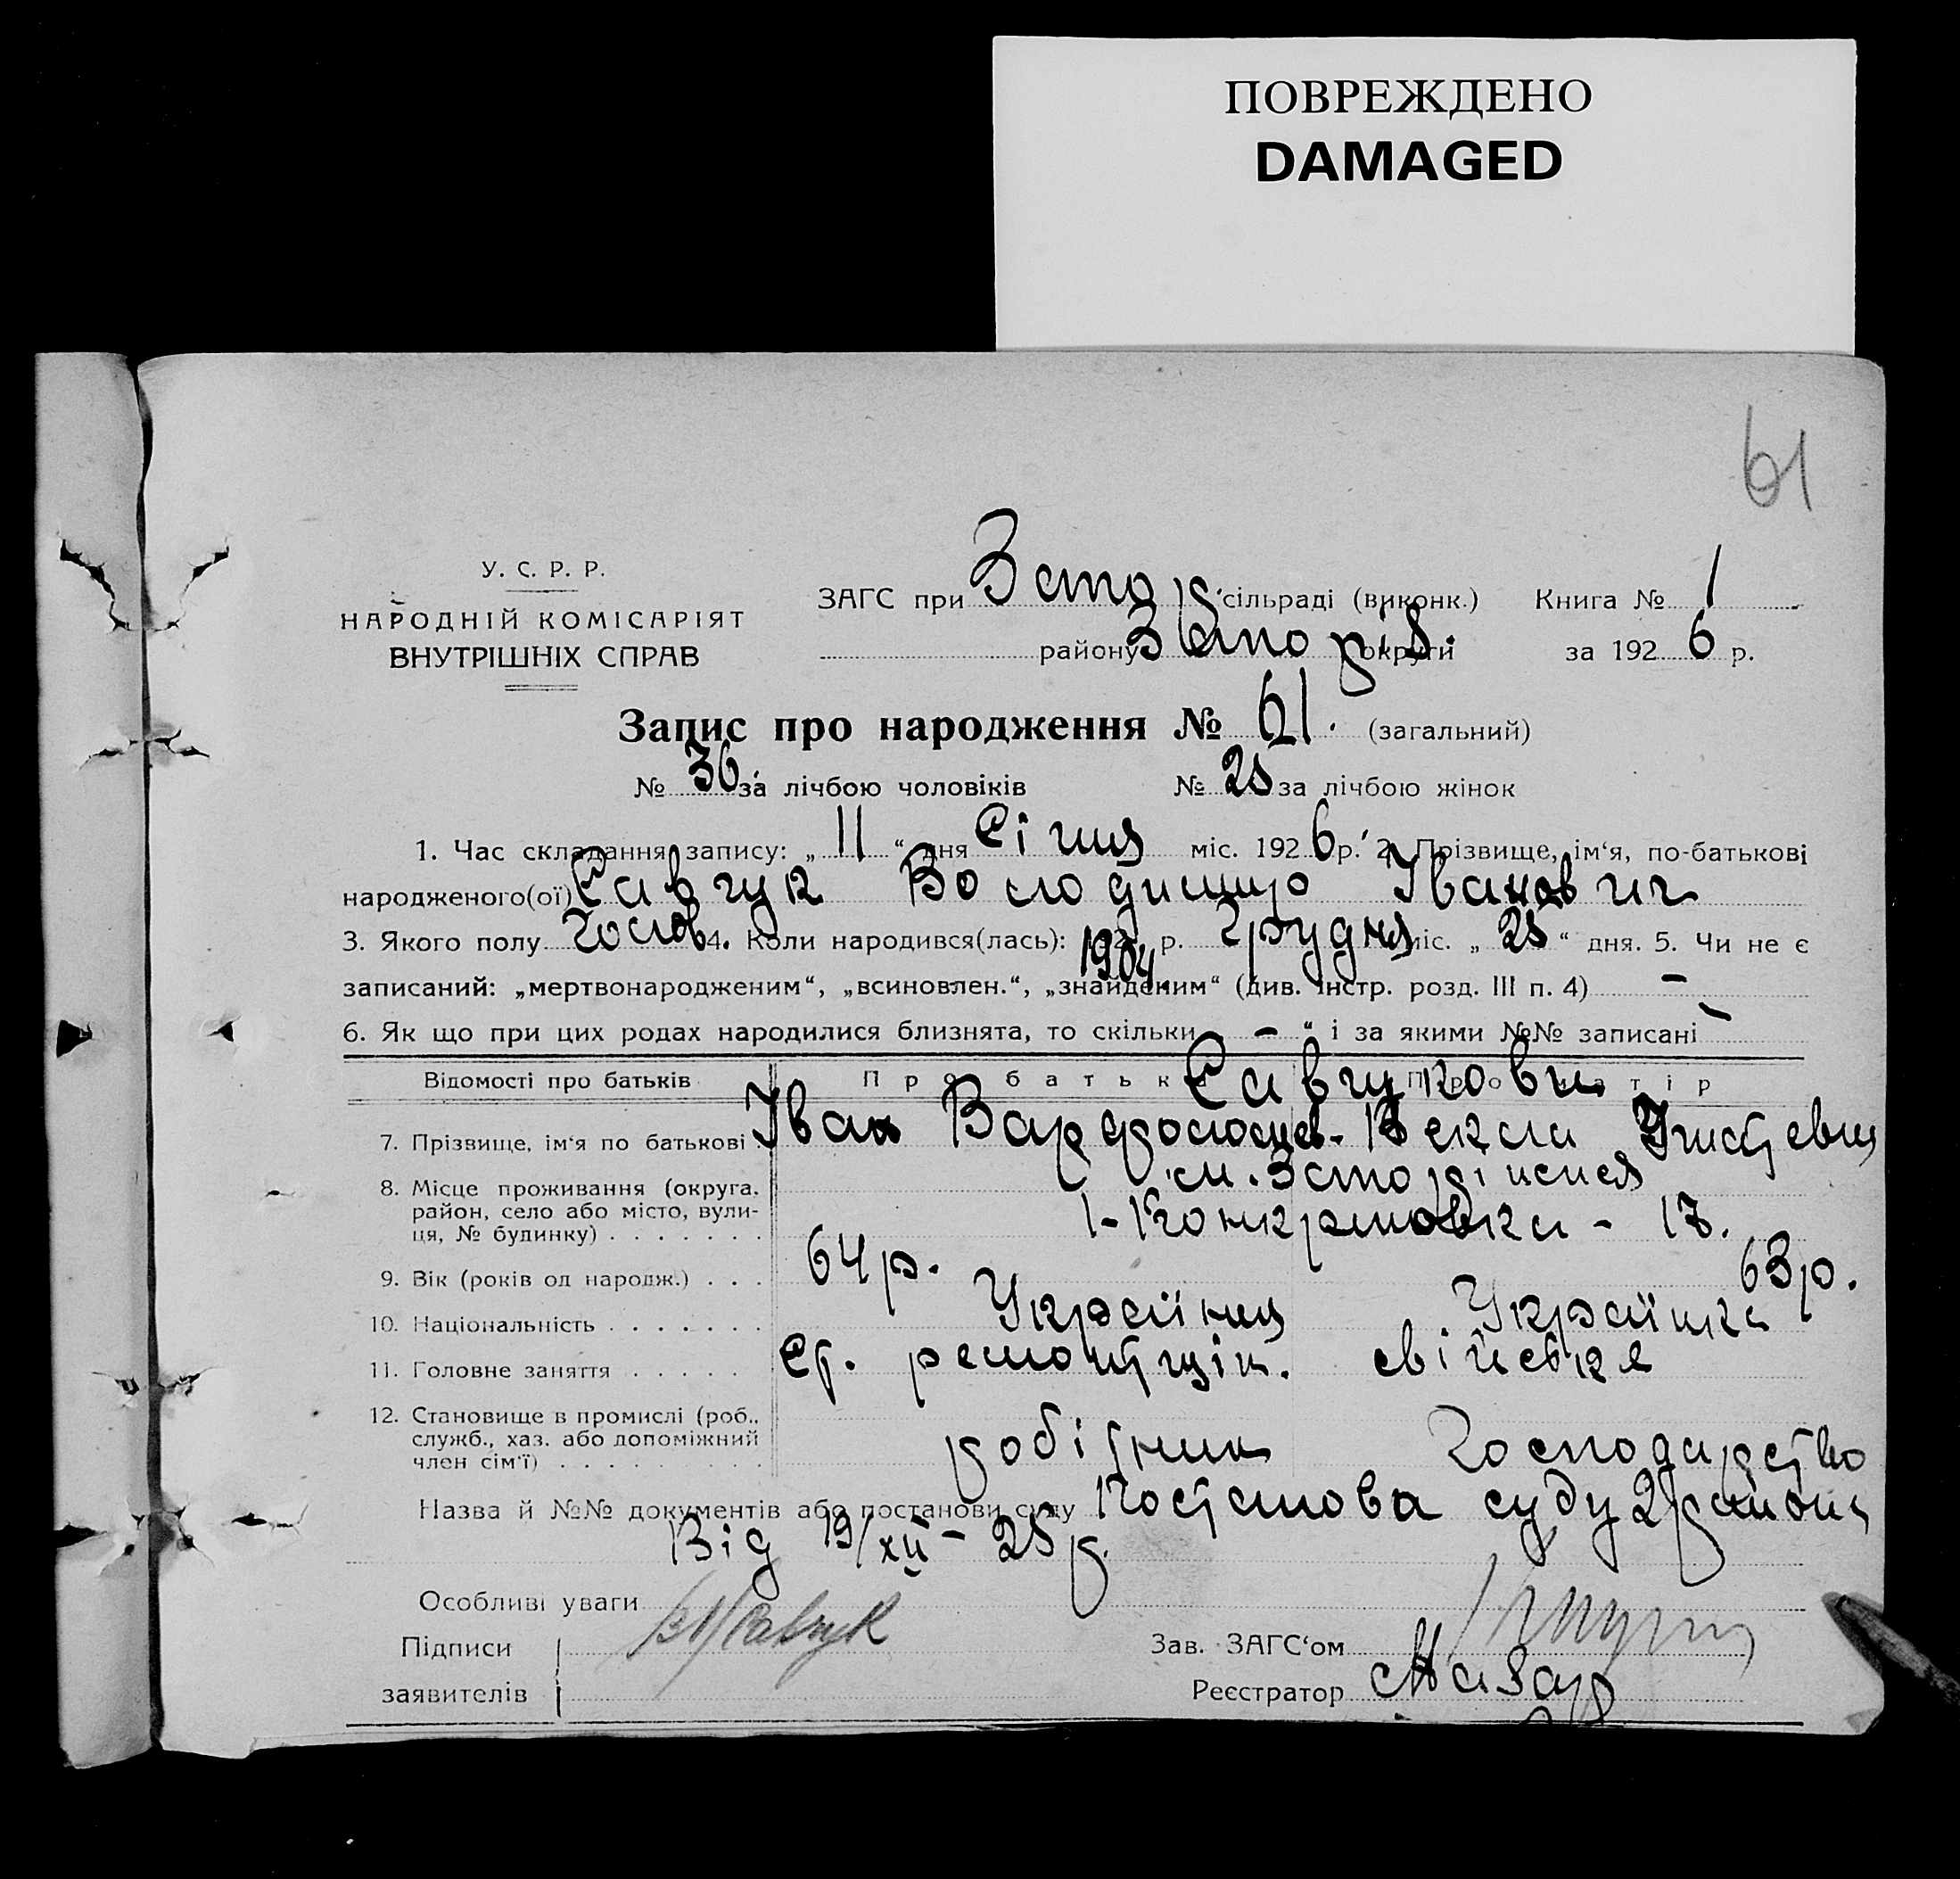 ПОВРЕЖДЕНО
DAMAGED
61
У. С. Р. Р.
НАРОДНІЙ КОМІСАРІЯТ
ВНУТРІШНІХ СПРАВ
ЗАГС при сільраді (виконк.) Книга № 1
району округи за 192 6 р.
Запис про народження № 61. (загальний)
№ 36 за лічбою чоловіків № 25 за лічбою жінок
1. Час складання запису: „ 11 “ дня Січня міс. 192 6 р. 2. Прізвище, ім‘я, по-батькові
народженого(ої) Савчук Володимир Іванович
3. Якого полу Чолов. 4. Коли народився(лась): 1904 р. Грудня міс. „ 25 “ дня. 5. Чи не є
записаний: „мертвонародженим“, „всиновлен.“, „знайденим“ (див. Інстр. розд. III п. 4) –
6. Як що при цих родах народилися близнята, то скільки – “ і за якими №№ записані –
Відомості про батьків Про батька Про матір
Савчукови
7. Прізвище, ім‘я по батькові Іван Варфоломев. Текля
8. Місце проживання (округа,
район, село або місто, вули-
ця, № будинку) . . . . . . .
9. Вік (років од народж.) . . . 64 р. 63 р.
10. Національність . . . . . . . Українец Українка
11. Головне заняття . . . . . Ст. ремонтщик. свійське
12. Становище в промислі (роб.,
служб., хаз. або допоміжний
член сім‘ї) . . . . . . . . . робітник Господарство
Назва й №№ документів або постанови суду Постанова суду 2 района
Від 19/XII – 25 р.
Особливі уваги
Підписи Савчук Зав. ЗАГС‘ом
заявителів Реєстратор Назар